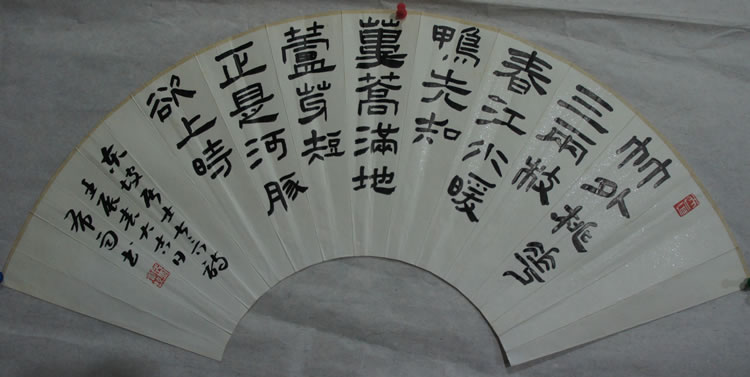 竹外桃花
三两枝
春江水暖
鴨先知
蔞蒿滿地
蘆芽短
正是河豚
欲上時
东坡居士诗
壬辰
书